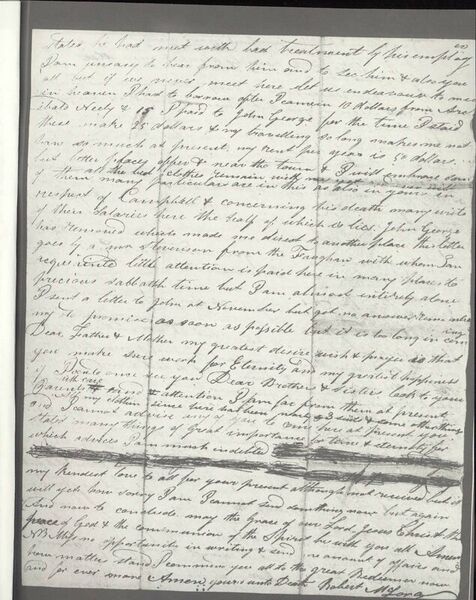 states he had met with bad treatment by his employ
I am uneasy to hear from him and to see him & also you
all but if we never meet here let us endeavour to me
in heaven I had to borrow after I came in 10 dollars from Arc
ibald Neely & 15 I paid to John George for the time I staid
these make 25 dollars & my travelling so long makes me not
have so much at present. my rent per year is 50 dollars.
but better places offer & near the town & I will embrace
if all the bed clothes remain with
them many particulars are in this as also in yours in
respect of Campbell & concerning his death many write
of their salaries here the half of which is lies. John George
has removed which made me direct to another place the letter
goes by a Mr Stevenson from the Faughan with whom I am
little attention is paid here in many places to
precious sabbath time but I am almost entirely alone
I sent a letter to John at November but got no answer
to promise as soon as possible but it is too long in com
ing
Dear Father & Mother my greatest desire wish & prayer is that
you make sure work for Eternity and my greatest happiness
if I could once see you Dear Brother & Sisters look to your
Parents with care & attention I am far from them at present
my clothing since here has been & 3 & some other things
and I cannot advise any of you to come here at present you
take many things of great importance for time & eternity for
which advices I am much indebted
my kindest love to all for your present although not received but it
will yet how sorry I am I cannot send something now but again
And now to conclude may the Grace of our Lord Jesus Christ the
peace of God & the communion of the Spirit be with you all Amen
NB Miss no opportunity in writing & send me amount of affairs and
how matters stand I commend you all to the great Redeemer now
and for ever more Amen yours until Death Robert